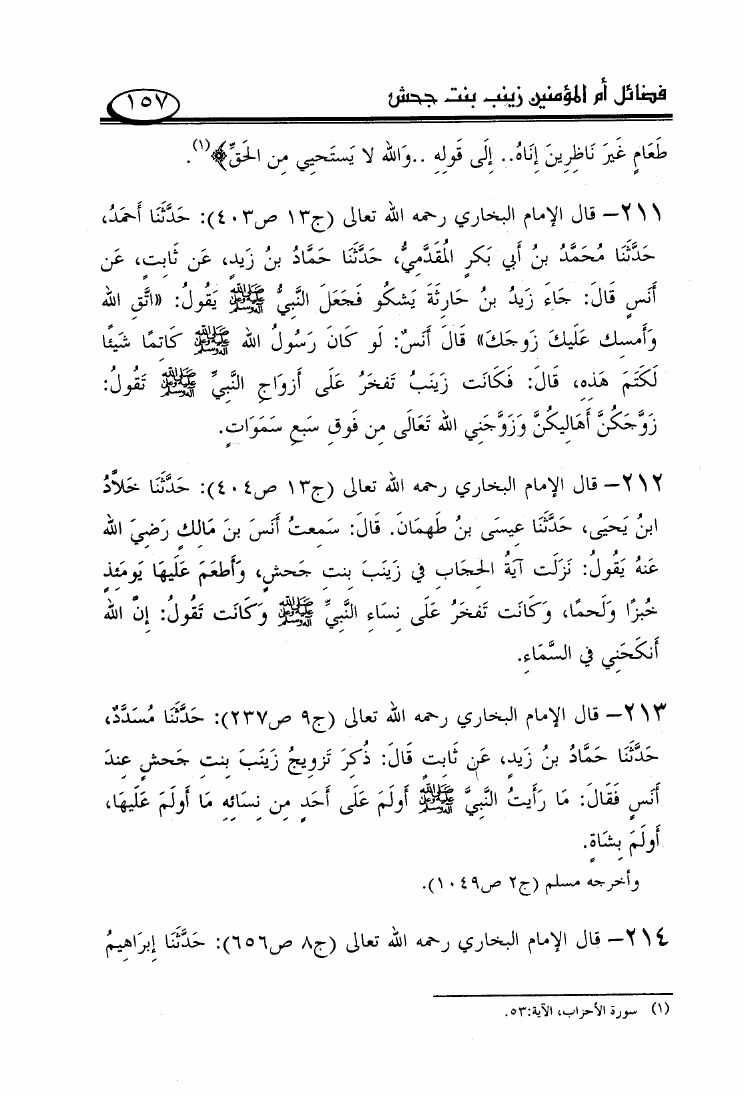 فضائل أم المؤمنين زينب بنت جحش
١٥٧
طَعَامٍ غَيرَ نَاظِرِينَ إِنَاهُ.. إِلَى قَولِهِ ..وَالله لا يَستَحيِي مِن الحَقِّ﴾(١).
٢١١– قال الإمام البخاري رحمه الله تعالى (ج١٣ ص٤٠٣): حَدَّثَنَا أَحمَدُ،
حَدَّثَنَا مُحَمَّدُ بنُ أَبي بَكرٍ المُقَدَّمِيُّ، حَدَّثَنَا حَمَّادُ بنُ زَيدٍ، عَن ثَابِتٍ، عَن
أَنَسٍ قَالَ: جَاءَ زَيدُ بنُ حَارِثَةَ يَشكُو فَجَعَلَ النَّبيُّ ﷺ يَقُولُ: «اتَّقِ الله
وَأَمسِك عَلَيكَ زَوجَكَ» قَالَ أَنَسٌ: لَو كَانَ رَسُولُ الله ﷺ كَاتِمًا شَيئًا
لَكَتَمَ هَذِهِ، قَالَ: فَكَانَت زَينَبُ تَفخَرُ عَلَى أَزوَاجِ النَّبيِّ ﷺ تَقُولُ:
زَوَّجَكُنَّ أَهَالِيكُنَّ وَزَوَّجَنِي الله تَعَالَى مِن فَوقِ سَبعِ سَمَوَاتٍ.
٢١٢– قال الإمام البخاري رحمه الله تعالى (ج١٣ ص٤٠٤): حَدَّثَنَا خَلاَّدُ
ابنُ يَحيَى، حَدَّثَنَا عِيسَى بنُ طَهمَانَ. قَالَ: سَمِعتُ أَنَسَ بنَ مَالِكٍ رَضِيَ الله
عَنهُ يَقُولُ: نَزَلَت آيَةُ الحِجَابِ في زَينَبَ بِنتِ جَحشٍ، وَأَطعَمَ عَلَيهَا يَومَئِذٍ
خُبزًا وَلَحمًا، وَكَانَت تَفخَرُ عَلَى نِسَاءِ النَّبيِّ ﷺ وَكَانَت تَقُولُ: إِنَّ الله
أَنكَحَنِي في السَّمَاءِ.
٢١٣– قال الإمام البخاري رحمه الله تعالى (ج٩ ص٢٣٧): حَدَّثَنَا مُسَدَّدٌ،
حَدَّثَنَا حَمَّادُ بنُ زَيدٍ، عَن ثَابِتٍ قَالَ: ذُكِرَ تَزوِيجُ زَينَبَ بِنتِ جَحشٍ عِندَ
أَنَسٍ فَقَالَ: مَا رَأَيتُ النَّبيَّ ﷺ أَولَمَ عَلَى أَحَدٍ مِن نِسَائِهِ مَا أَولَمَ عَلَيهَا،
أَولَمَ بِشَاةٍ.
وأخرجه مسلم (ج٢ ص١٠٤٩).
٢١٤– قال الإمام البخاري رحمه الله تعالى (ج٨ ص٦٥٦): حَدَّثَنَا إِبرَاهِيمُ
(١) سورة الأحزاب، الآية:٥٣.